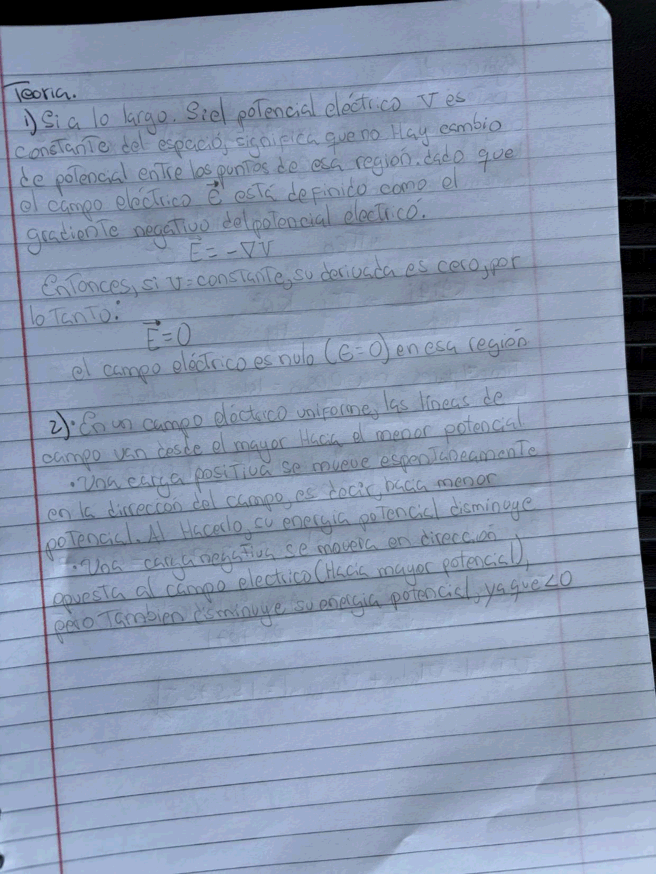 Teoria.
1) Si a lo largo. Si el potencial eléctrico V es
constante del espacio, significa que no Hay cambio
de potencial entre los puntos de esa región. dado que
el campo eléctrico E⃗ está definido como el
gradiente negativo del potencial electrico.
E⃗ = -∇V
Entonces, si V = constante, su derivada es cero, por
lo Tanto:
E⃗ = 0
el campo eléctrico es nulo (E = 0) en esa región
2) • En un campo eléctrico uniforme, las líneas de
campo van desde el mayor Hacia el menor potencial
• Una carga positiva se mueve espontaneamente
en la dirección del campo, es decir, hacia menor
potencial. Al Hacerlo, su energia potencial disminuye
• Una carga negativa se movera en dirección
opuesta al campo electrico (Hacia mayor potencial),
pero Tambien disminuye su energia potencial, ya que <0